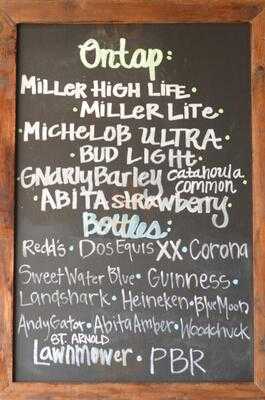 Ontap:
MILLER HIGH LIFE •
• MILLER LITE •
• MICHELOB ULTRA •
• BUD LIGHT •
GNARLY BARLEY catahoula common •
• ABITA strawberry •
Bottles:
Redd's • DOS EQUIS XX • CORONA
SweetWater Blue • GUINNESS •
Landshark • Heineken • Blue Moon
Andy Gator • Abita Amber • Woodchuck
ST. ARNOLD
Lawnmower • PBR